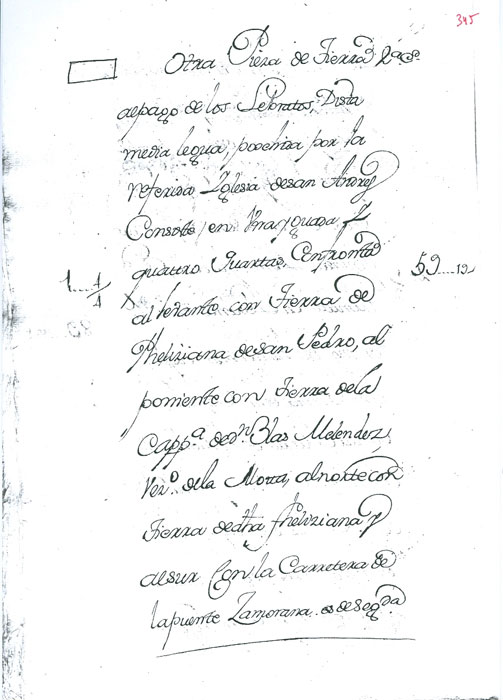 345
Otra Pieza de Tierra
al pago de los Lebratos, Dista
media legua, posehida por la
referida Yglesia de san Andres
Consiste en Una yguada y
quattro Quartas, Confronta
1....1/1 59....19
al levante con Tierra de
Pheliziana de san Pedro, al
poniente con Tierra de la
Capp.ª de d.n Blas Melendez
Vez.º de la Motta, al norte con
Tierra de dha Pheliziana y
al sur Con la Carretera de
la puente Zamorana. es de seg.da